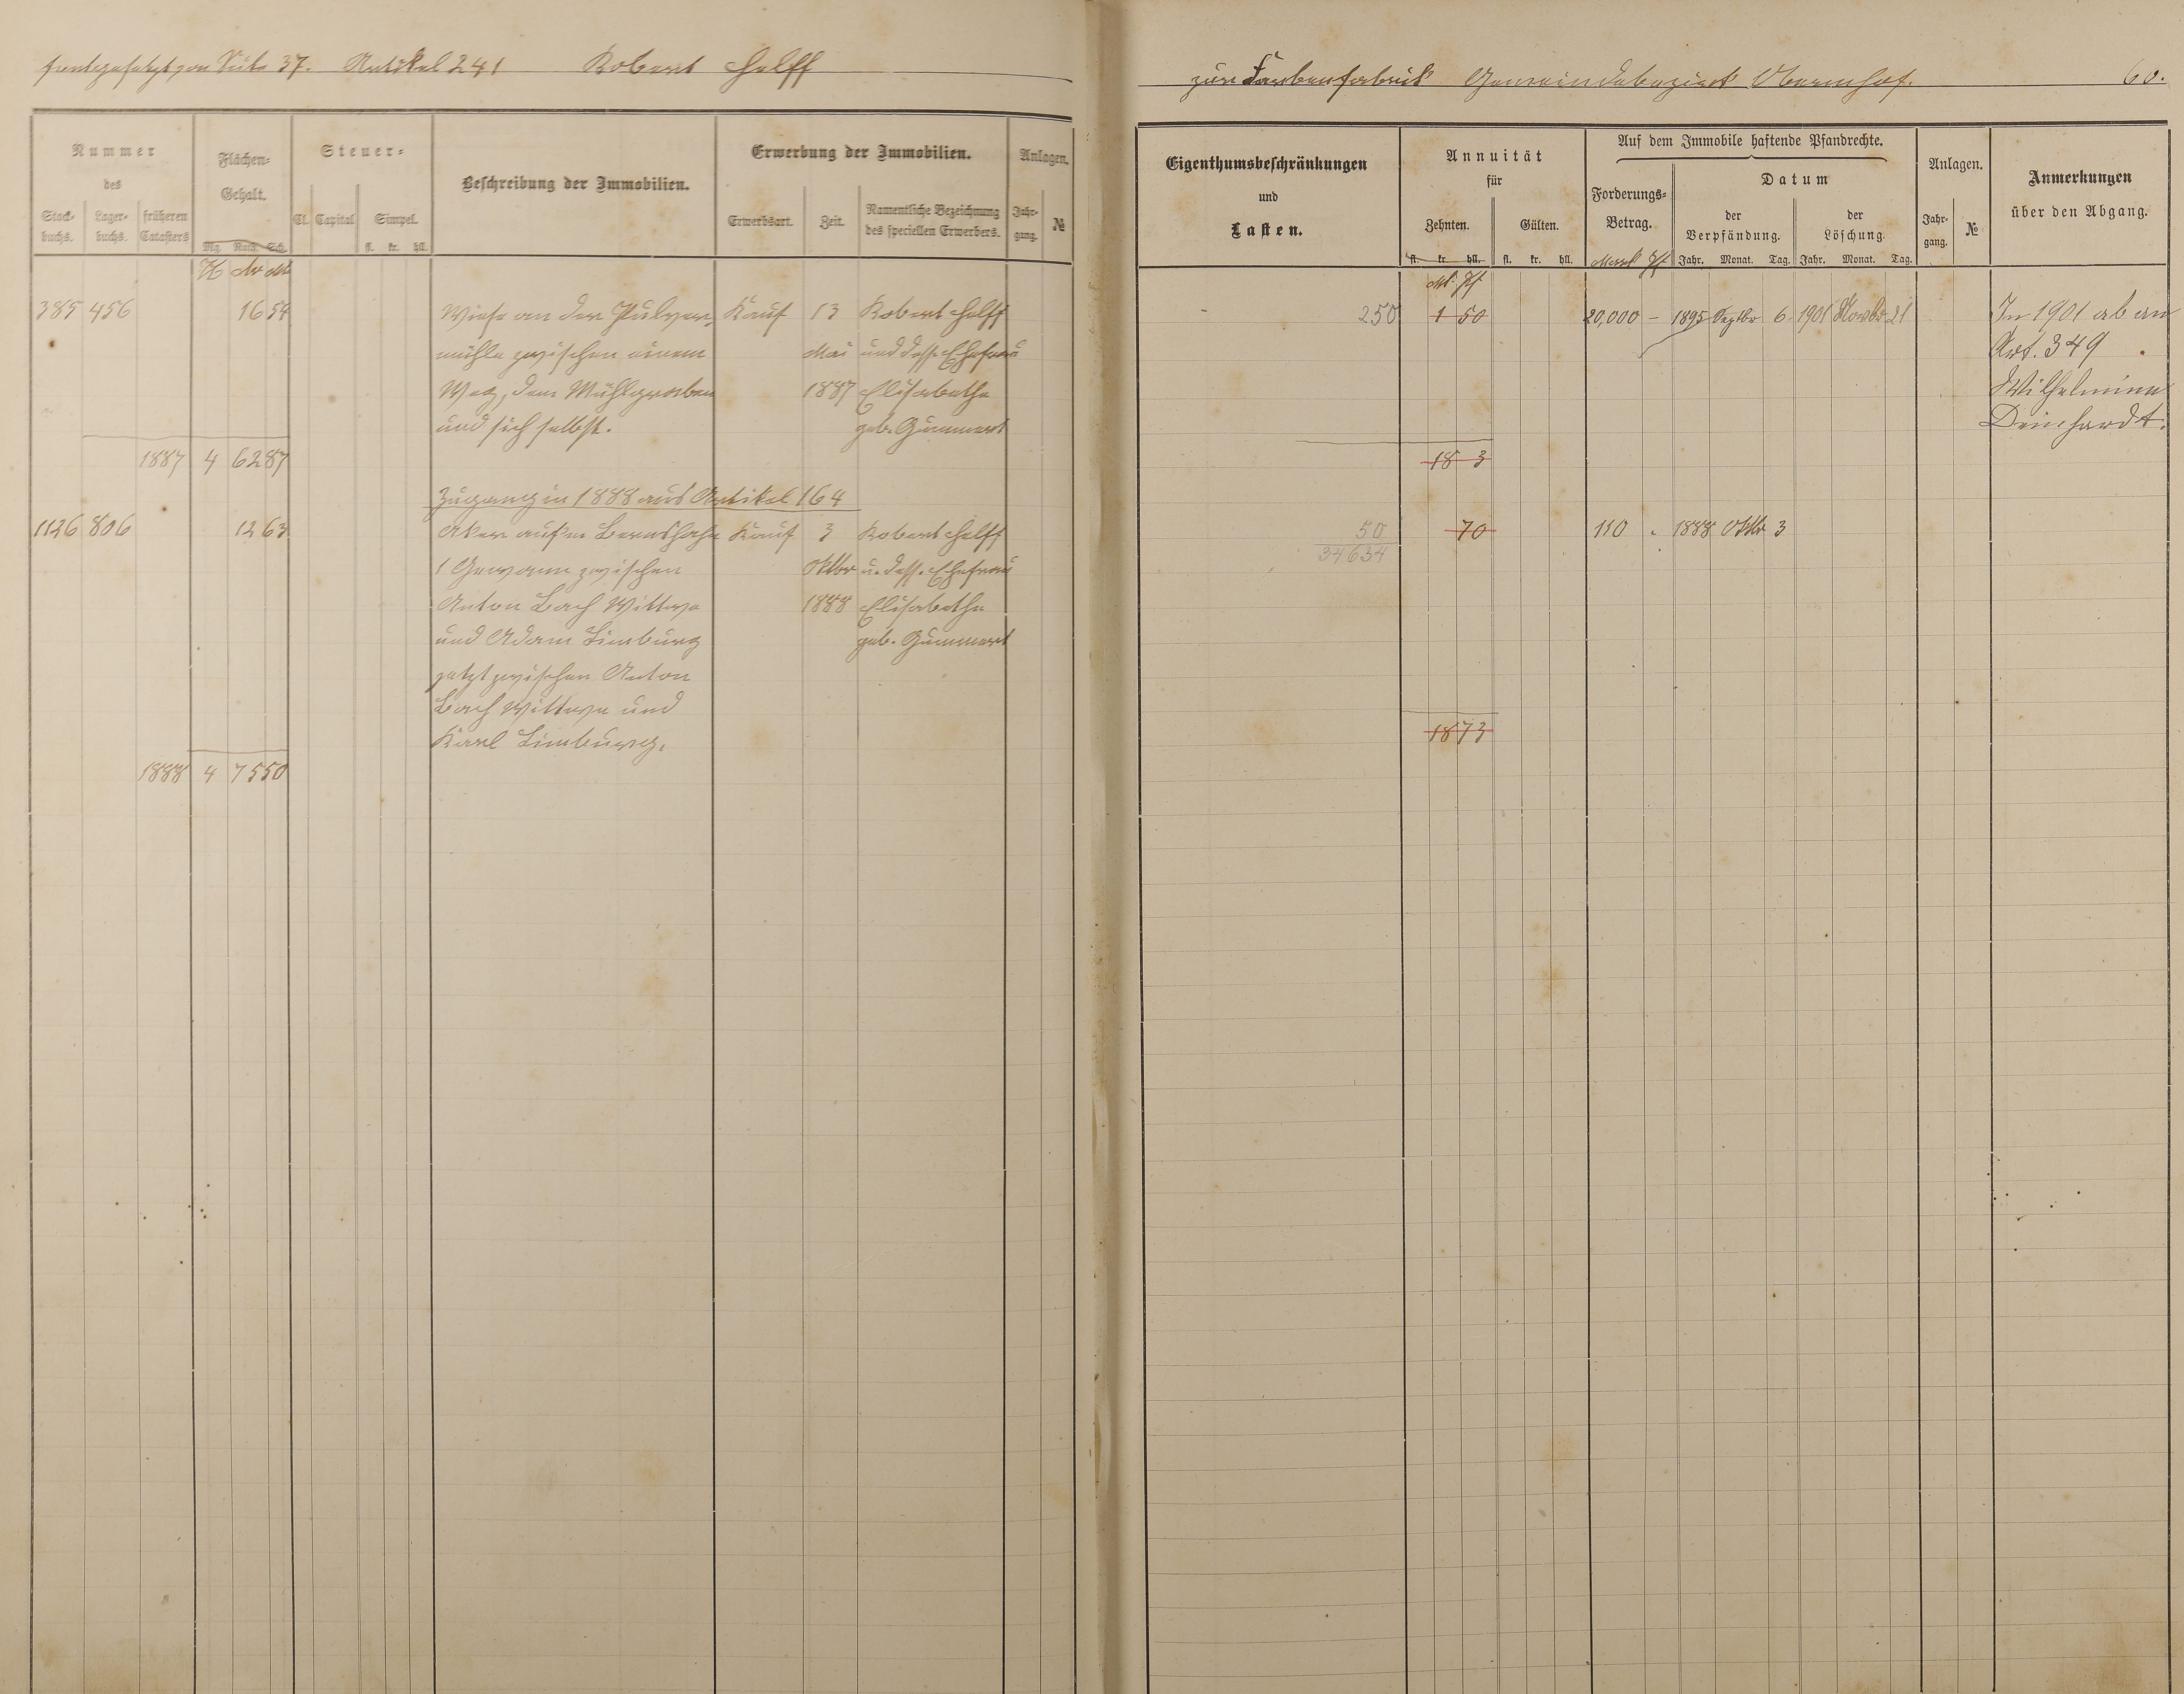 fortgesetzt von Seite 37. Artikel 241 Robert Helff
zur Farbenfabrik Gemeindebezirk Obernhof. 60.
Nummer
des
Stock-
buchs.
Lager-
buchs.
früheren
Catasters
Flächen-
Gehalt.
Mg. Ruth. Sch.
Steuer-
Cl. Capital
Simpel.
fl. kr. hll.
Beschreibung der Immobilien.
Erwerbung der Immobilien.
Erwerbsart.
Zeit.
Namentliche Bezeichnung
des speciellen Erwerbers.
Anlagen.
Jahr-
gang.
№
Eigenthumsbeschränkungen
und
Lasten.
Annuität
für
Zehnten.
Gülten.
fl. kr. hll. fl. kr. hll.
Auf dem Immobile haftende Pfandrechte.
Forderungs-
Betrag.
Mark Pf
Datum
der
Verpfändung.
der
Löschung.
Jahr. Monat. Tag. Jahr. Monat. Tag.
Anlagen.
Jahr-
gang.
№
Anmerkungen
über den Abgang.
H Ar M
Mk. Pf.
385 456 1654 Wiese an der Pulver- Kauf 13 Robert Helff 250 1 50 20,000 – 1895 Septbr 6 1901 Novbr 21 In 1901 ab an
mühle zwischen einem Mai und dess. Ehefrau Art. 349.
Weg, dem Mühlgraben 1887 Elisabethe Wilhelmine
und sich selbst. geb. Gummert Deinhardt.
1887 4 6287 18 3
Zugang in 1888 aus Artikel 164
1126 806 1263 Aker auf'm Bernshahn Kauf 3 Robert Helff 50 70 110 „ 1888 Oktbr 3
34634
1 Gewann zwischen Oktbr u. dess. Ehefrau
Anton Bach Wittwe 1888 Elisabethe
und Adam Limburg geb. Gummert
jetzt zwischen Anton
Bach Wittwe und
Karl Limburg. 18 73
1888 4 7550